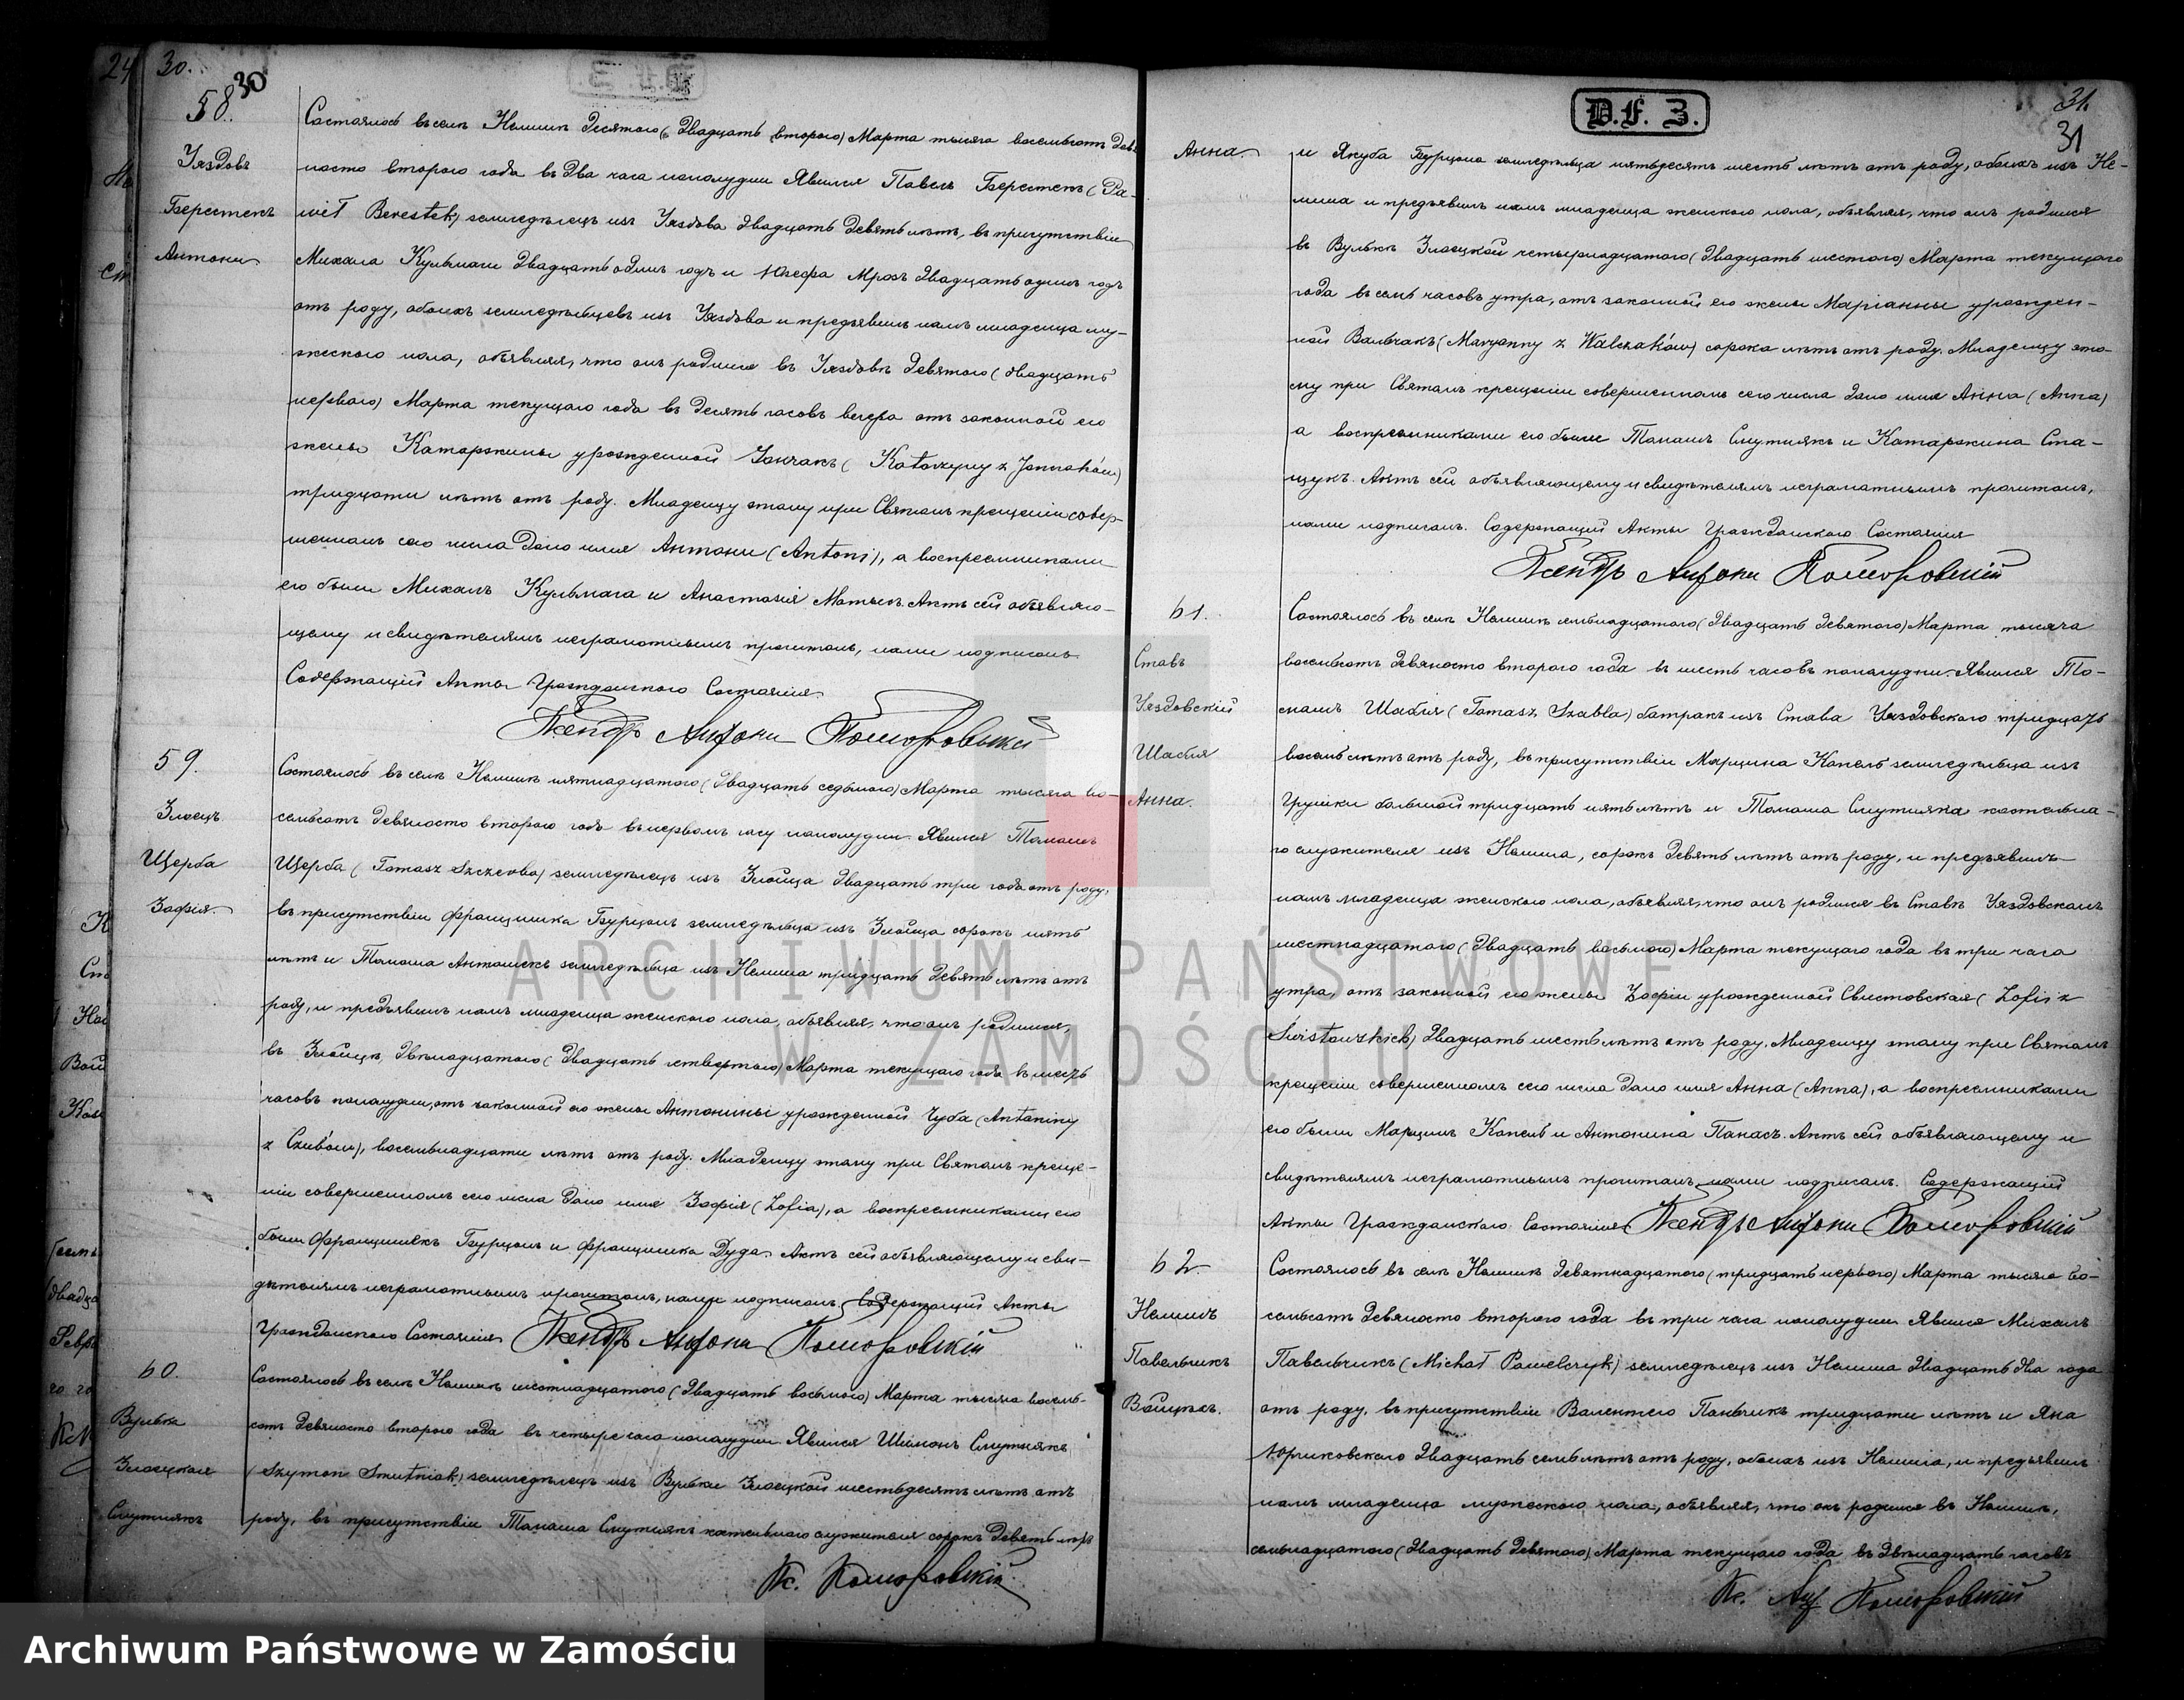 24
30.
30
58.
Уяздовъ
Берестекъ
Антони.
Состоялось въ селѣ Немишѣ десятого (двадцать второго) Марта тысяча восемьсотъ девя-
носто второго года въ два часа пополудни Явился Павелъ Берестекъ (Pa-
weł Berestek) земледѣлецъ изъ Уяздова двадцать девять лѣтъ, въ присутствіи
Михала Кульмаги двадцать одинъ годъ и Юзефа Мрозъ двадцать одинъ годъ
отъ роду, обоихъ земледѣльцевъ изъ Уяздова и предъявилъ намъ младенца му-
жескаго пола, объявляя, что онъ родился въ Уяздовѣ девятого (двадцать
перваго) Марта текущаго года въ десять часовъ вечера отъ законной его
жены Катаржины урожденной Яничакъ (Katarzyny z Janiaków)
тридцати лѣтъ отъ роду. Младенцу этому при Святомъ крещеніи совер-
шенномъ сего числа дано имя Антони (Antoni), а воспреемниками
его были Михалъ Кульмага и Анастазія Матыкъ. Актъ сей объявляю-
щему и свидѣтелямъ неграмотнымъ прочитанъ, нами подписанъ
Содержащій Акты Гражданскаго Состоянія
Ксендзъ Антони Коморовскій
59.
Злоецъ.
Щерба
Зофія.
Состоялось въ селѣ Немишѣ пятнадцатого (двадцать седьмого) Марта тысяча во-
семьсотъ девяносто второго года въ первомъ часу пополудни. Явился Томашъ
Щерба (Tomasz Szczerba) земледѣлецъ изъ Злойца двадцать три года отъ роду,
въ присутствіи Францишка Бурцонъ земледѣльца изъ Злойца сорокъ пять
лѣтъ и Томаша Антошекъ земледѣльца изъ Немиша тридцать девять лѣтъ отъ
роду, и предъявилъ намъ младенца женскаго пола, объявляя, что онъ родился
въ Злойцѣ, двѣнадцатого (двадцать четвертого) Марта текущаго года въ шесть
часовъ пополудни, отъ законной его жены Антонины урожденной Чуба (Antoniny
z Czubów), восемьнадцати лѣтъ отъ роду. Младенцу этому при Святомъ креще-
ніи совершенномъ сего числа дано имя Зофія (Zofia), а воспреемниками его
были Францишекъ Бурцонъ и Францишка Дуда. Актъ сей объявляющему и сви-
дѣтелямъ неграмотнымъ прочитанъ, нами подписанъ. Содержащій Акты
Гражданскаго Состоянія Ксендзъ Антони Коморовскій
60.
Вулька
Злоецкая
Смутнякъ
Состоялось въ селѣ Немишѣ шестнадцатого (двадцать восьмого) Марта тысяча восемь-
сотъ девяносто второго года въ четыре часа пополудни. Явился Шимонъ Смутнякъ
(Szymon Smutniak) земледѣлецъ изъ Вульки Злоецкой шестьдесятъ лѣтъ отъ
роду, въ присутствіи Томаша Смутнякъ костельнаго служителя сорокъ девять лѣтъ
Кс. Коморовскій
D.F. 3.
31.
31
Анна.
и Якуба Бурцона земледѣльца пятьдесятъ шесть лѣтъ отъ роду, обоихъ изъ Не-
миша и предъявилъ намъ младенца женскаго пола, объявляя, что онъ родился
въ Вулькѣ Злоецкой четырнадцатого (двадцать шестого) Марта текущаго
года въ семь часовъ утра, отъ законной его жены Маріанны урожден-
ной Вальчакъ (Maryanny z Walczaków) сорока лѣтъ отъ роду. Младенцу это-
му при Святомъ крещеніи совершенномъ сего числа дано имя Анна (Anna)
а воспреемниками его были Томашъ Смутнякъ и Катаржина Ста-
щукъ. Актъ сей объявляющему и свидѣтелямъ неграмотнымъ прочитанъ,
нами подписанъ. Содержащій Акты Гражданскаго Состоянія
Ксендзъ Антони Коморовскій
61.
Ставъ
Уяздовскій
Шабля
Анна.
Состоялось въ селѣ Немишѣ семьнадцатого (двадцать девятого) Марта тысяча
восемьсотъ девяносто второго года въ шесть часовъ пополудни. Явился То-
машъ Шабля (Tomasz Szabla) батракъ изъ Става Уяздовскаго тридцать
восемь лѣтъ отъ роду, въ присутствіи Марцина Капель земледѣльца изъ
Грушки большой тридцать пять лѣтъ и Томаша Смутняка костельна-
го служителя изъ Немиша, сорокъ девять лѣтъ отъ роду, и предъявилъ
намъ младенца женскаго пола, объявляя, что онъ родился въ Ставѣ Уяздовскомъ
шестнадцатого (двадцать восьмого) Марта текущаго года въ три часа
утра, отъ законной его жены Зофіи урожденной Свистовская (Zofii z
Świstowskich) двадцать шесть лѣтъ отъ роду. Младенцу этому при Святомъ
крещеніи совершенномъ сего числа дано имя Анна (Anna), а воспреемниками
его были Марцинъ Капель и Антонина Панасъ. Актъ сей объявляющему и
свидѣтелямъ неграмотнымъ прочитанъ, нами подписанъ. Содержащій
Акты Гражданскаго Состоянія Ксендзъ Антони Коморовскій
62.
Немишъ
Павельчикъ
Войцѣхъ.
Состоялось въ селѣ Немишѣ девятнадцатого (тридцать перваго) Марта тысяча во-
семьсотъ девяносто второго года въ три часа пополудни Явился Михалъ
Павельчикъ (Michał Pawelczyk) земледѣлецъ изъ Немиша двадцать два года
отъ роду, въ присутствіи Валентего Паньчикъ тридцати лѣтъ и Яна
Юрчковского двадцать семь лѣтъ отъ роду, обоихъ изъ Немиша, и предъявилъ
намъ младенца мужескаго пола, объявляя, что онъ родился въ Немишѣ,
семьнадцатого (двадцать девятого) Марта текущаго года въ двѣнадцать часовъ
Кс. Ант Коморовскій
ARCHIWUM PAŃSTWOWE
W ZAMOŚCIU
Archiwum Państwowe w Zamościu